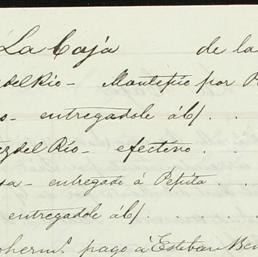 La Caja de la
del Rio - Montepio por P
s - entregadole á b/. . .
ez del Rio - efectivo . .
sa - entregado á Pepita . . .
entregadole á b/. . . .
oherm.^s pago á Esteban Ben